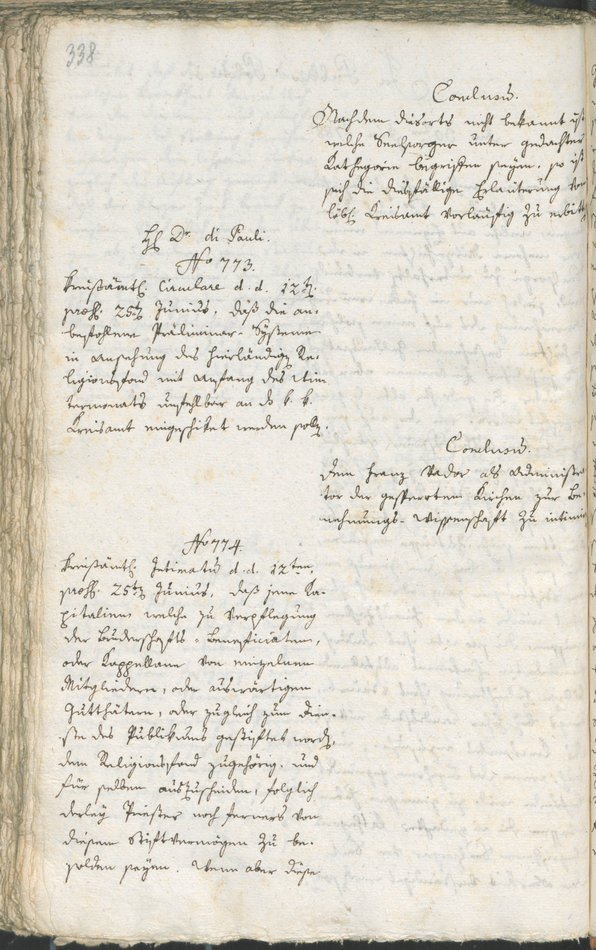 338
Conclusum.
Nachdem diesorts nicht bekannt ist
welche Seelsorger unter gedachter
Kathegorie begriffen seyen, so ist
sich die diesfällige Erläuterung vom
löbl. Kreisamt vorläufig zu erbitten
H Dr. di Pauli.
No 773.
Kreisämtl. Circulare d. d. 12t.
präs. 25t Junius, daß die an-
befohlene Präliminar-Systeme
in Ansehung des hierländig Re-
ligionsfond mit Anfang des
termonats unfehlbar an das k. k.
Kreisamt eingeschiket werden soll.
Conclusum.
Dem Franz Vador als Administra
tor der gesperrten Kirchen zur Be-
nehmungs-Wissenschaft zu intimir
No 774.
Kreisämtl. Intimatum d. d. 12ten,
präs. 25t Junius, daß jene Ka-
pitalien welche zu Verpflegung
der Bruderschafts-Beneficiaten,
oder Kappellane von einzelnen
Mitgliedern, oder auswärtigen
Gutthätern, oder zugleich zum Dien-
ste des Publikums gestiftet word,
dem Religionsfond zugehörig, und
für selben auszuscheiden, folglich
derley Priester noch ferners von
diesem Stiftvermögen zu be-
solden seyen. Wenn aber diese